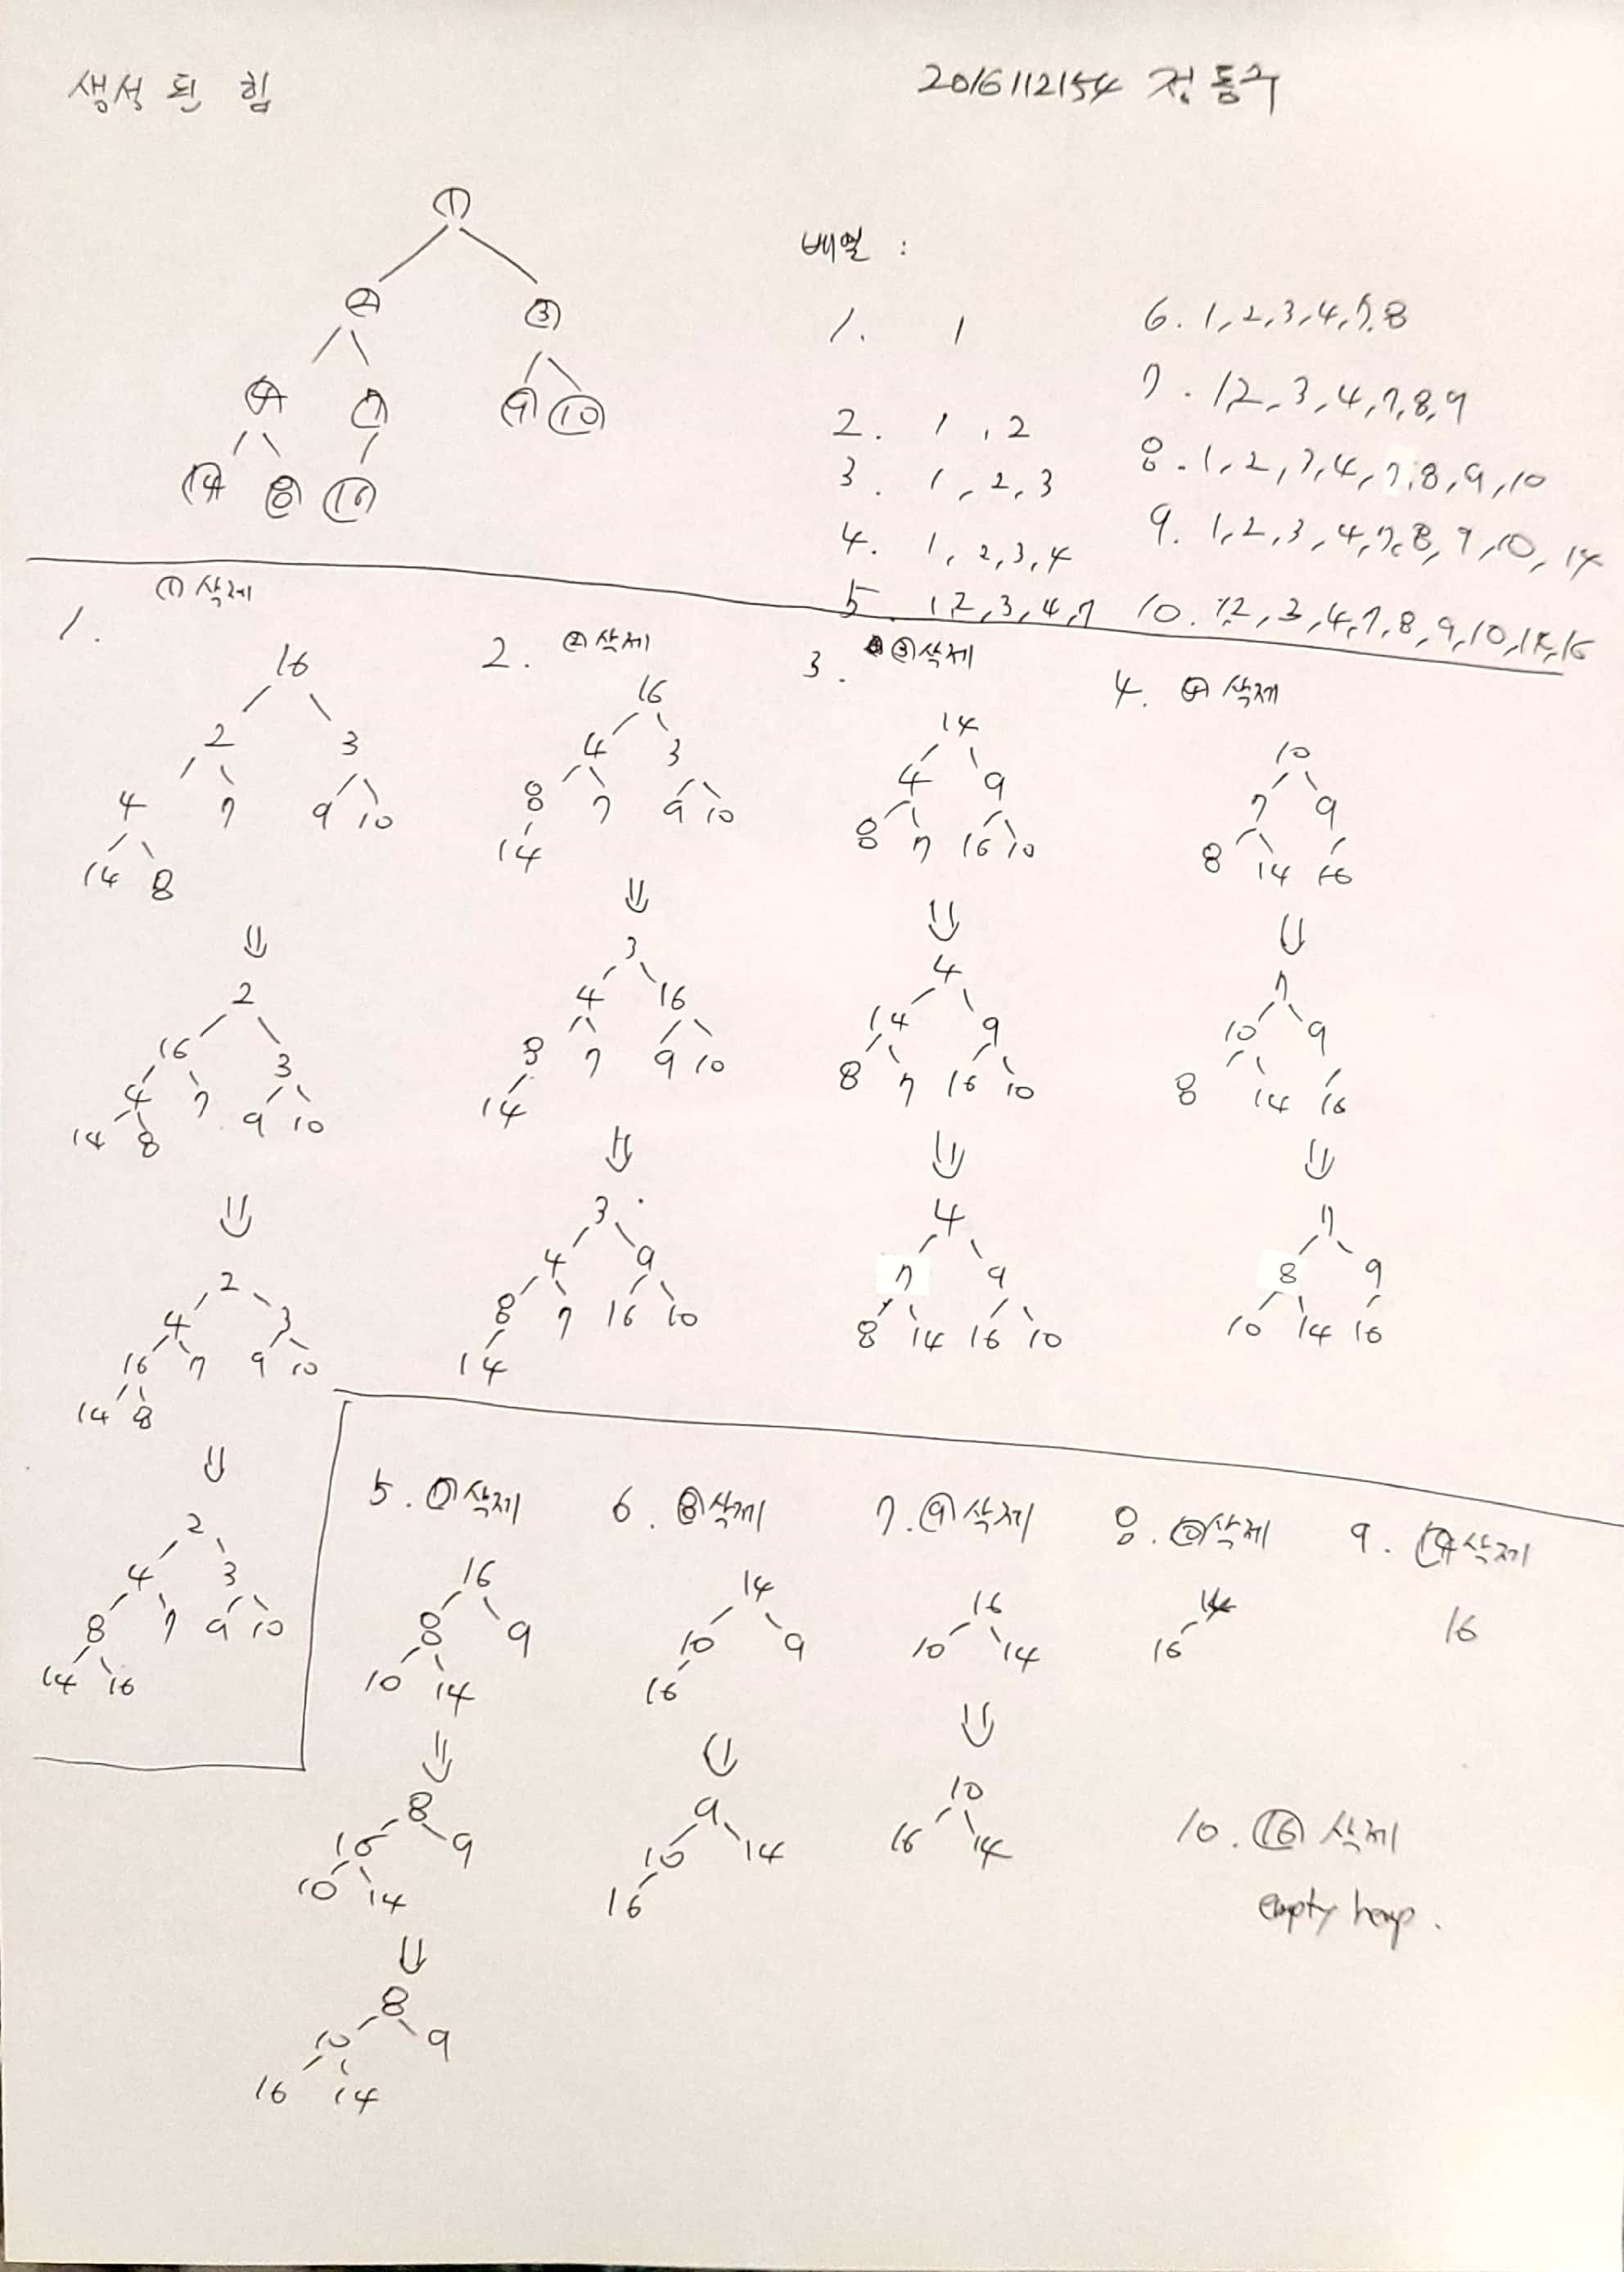 생성된 힙
2016112154 정동구
1
2 3
4 7 9 10
14 8 16
배열 :
1. 1
2. 1, 2
3. 1, 2, 3
4. 1, 2, 3, 4
5 1, 2, 3, 4, 7
6. 1, 2, 3, 4, 7, 8
7. 1, 2, 3, 4, 7, 8, 9
8. 1, 2, 3, 4, 7, 8, 9, 10
9. 1, 2, 3, 4, 7, 8, 9, 10, 14
10. 1, 2, 3, 4, 7, 8, 9, 10, 14, 16
1. ① 삭제
16
2 3
4 7 9 10
14 8
⇓
2
16 3
4 7 9 10
14 8
⇓
2
4 3
16 7 9 10
14 8
⇓
2
4 3
8 7 9 10
14 16
2. ② 삭제
16
4 3
8 7 9 10
14
⇓
3
4 16
8 7 9 10
14
⇓
3
4 9
8 7 16 10
14
3. ③ 삭제
14
4 9
8 7 16 10
⇓
4
14 9
8 7 16 10
⇓
4
7 9
8 14 16 10
4. ④ 삭제
10
7 9
8 14 16
⇓
7
10 9
8 14 16
⇓
7
8 9
10 14 16
5. ⑦ 삭제
16
8 9
10 14
⇓
8
16 9
10 14
⇓
8
10 9
16 14
6. ⑧ 삭제
14
10 9
16
⇓
9
10 14
16
7. ⑨ 삭제
16
10 14
⇓
10
16 14
8. ⑩ 삭제
14
16
9. ⑭ 삭제
16
10. ⑯ 삭제
empty heap.